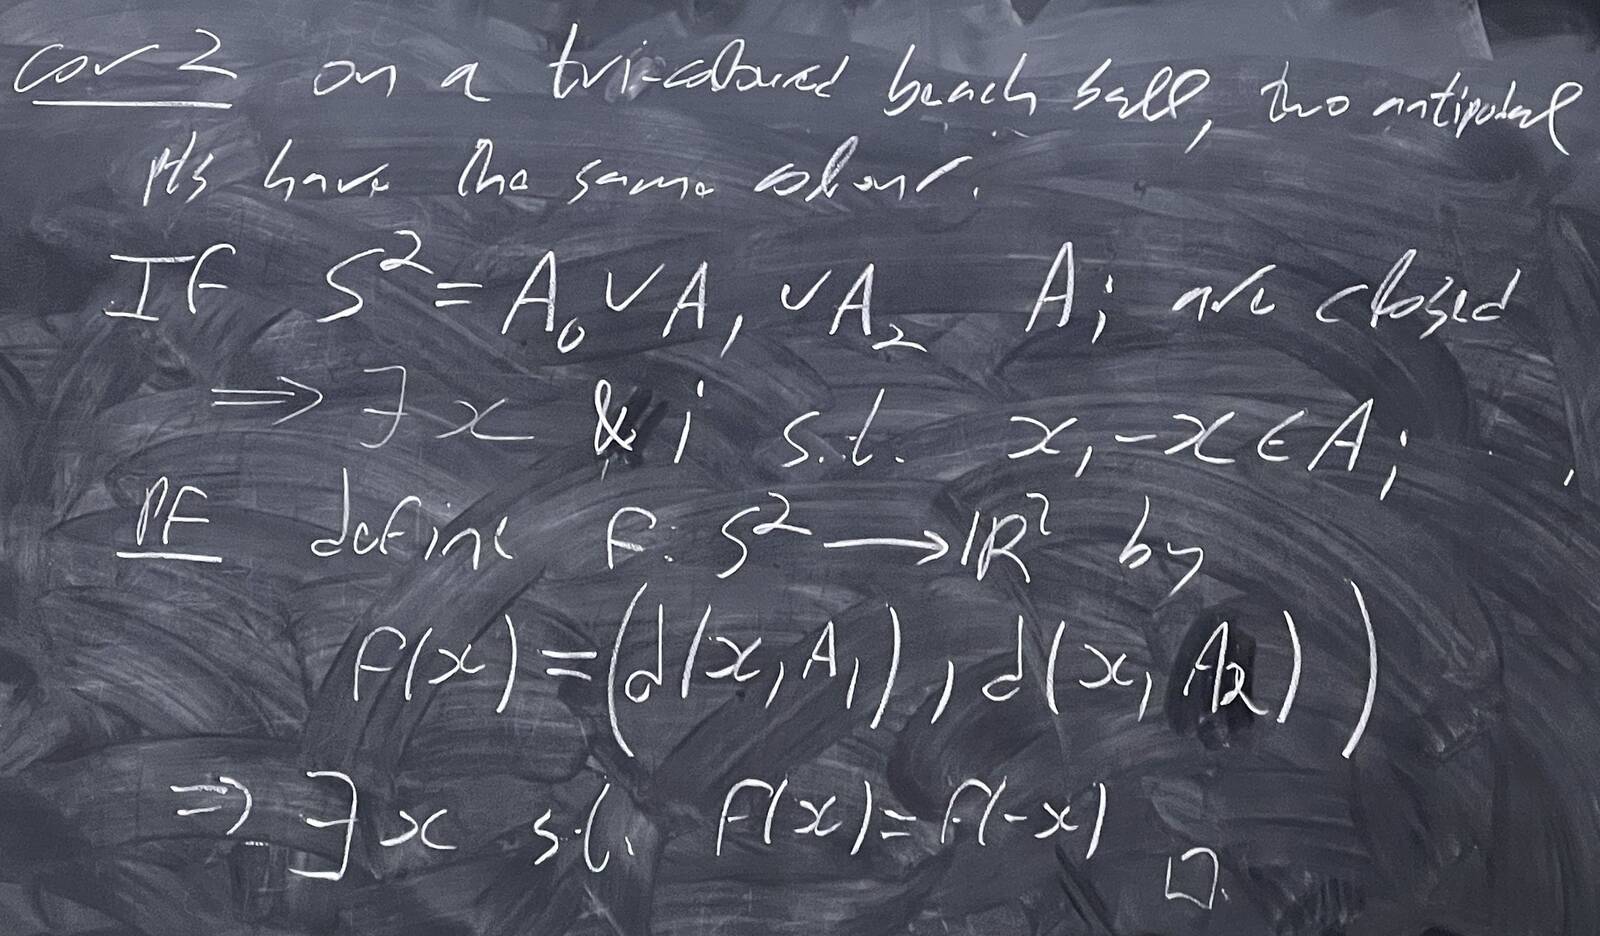 Cor 2 on a tri-coloured beach ball, two antipodal
pts have the same colour.
If S² = A₀ ∪ A₁ ∪ A₂ Aᵢ are closed
⟹ ∃ x & i s.t. x, -x ∈ Aᵢ
Pf define f: S² ⟶ ℝ² by
f(x) = (d(x, A₁), d(x, A₂))
⇒ ∃ x s.t. f(x) = f(-x)
□.